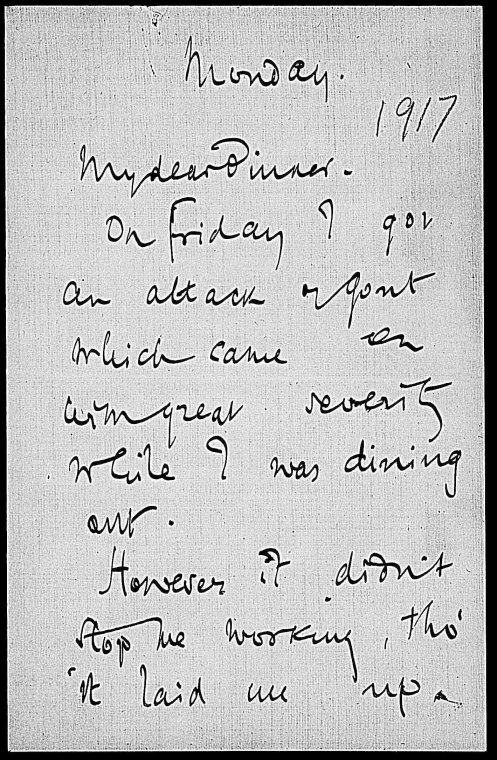 Monday.
1917
My dear Dinner.
On Friday I got
an attack of gout
which came on
with great severity
while I was dining
out.
However it didn't
stop me working, tho'
it laid me up.